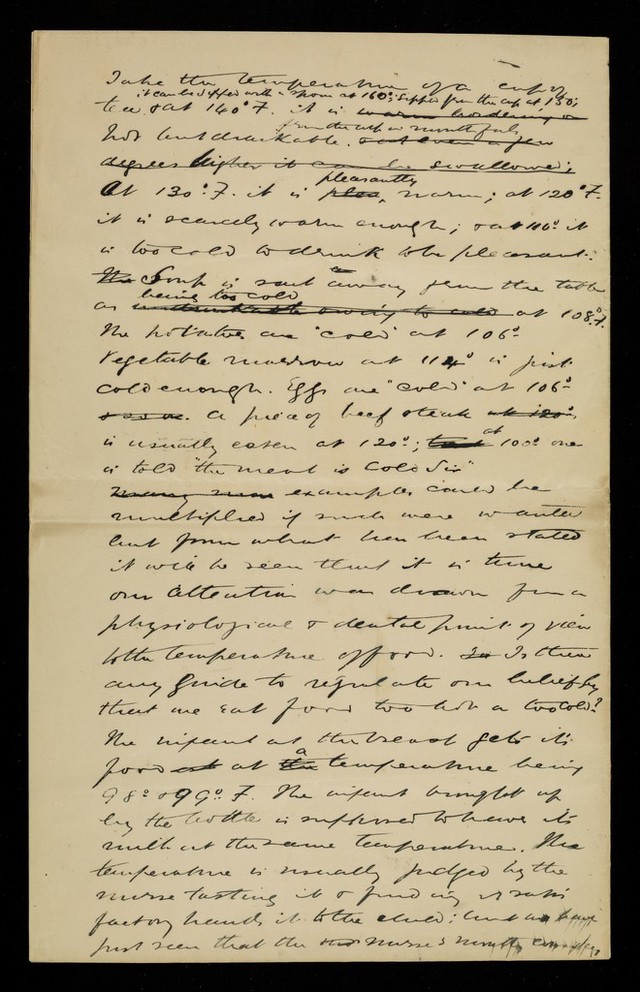 Take the temperature of a cup of
it can be sipped with a spoon at 160°; sipped from the cup at 150°;
tea & at 140° F. it is warm bordering on
from the cup in mouthfuls
hot but drinkable. and even a few
degrees higher it can be swallowed;
At 130° F. it is plea, pleasantly warm; at 120° F.
it is scarcely warm enough; & at 100° it
is too cold to drink to be pleasant.
The Soup is sent away from the table
being too cold
as undrinkable owing to cold at 108° F.
The potatoes are "cold" at 106°
Vegetable marrow at 114° is just
cold enough. Eggs are "cold" at 106°
A piece of beef steak at 120°,
is usually eaten at 120°; at 100° one
is told "the meat is Cold Sir"
Many more examples could be
multiplied if such were wanted
but from what has been stated
it will be seen that it is time
our attention was drawn from a
physiological & dental point of view
to the temperature of food. Is there
any guide to regulate our belief by
that we eat food too hot or too cold?
The infant at the breast gets its
food at the a temperature being
98° or 99° F. The infant brought up
by the bottle is supposed to have its
milk at the same temperature. The
temperature is usually judged by the
nurse tasting it & finding it satis
factory hands it to the child; but we have
just seen that the nurse's mouth can